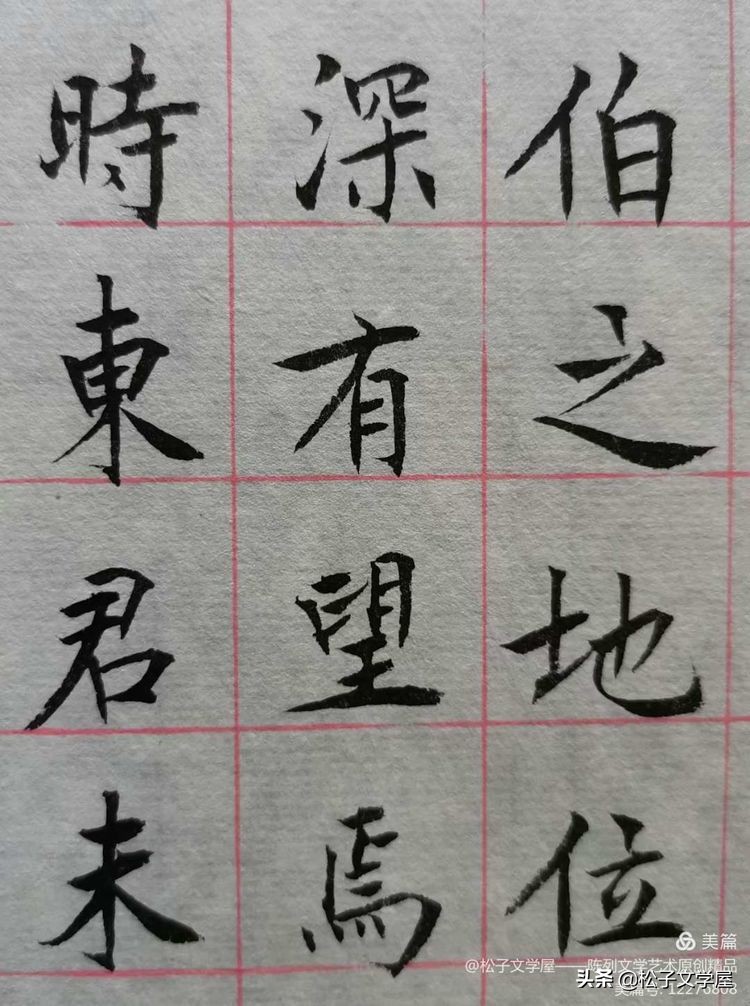 伯之地位
深有望焉
時東君未
美篇
@松子文学屋——陈列文学艺术原创精品
头条 @松子文学屋